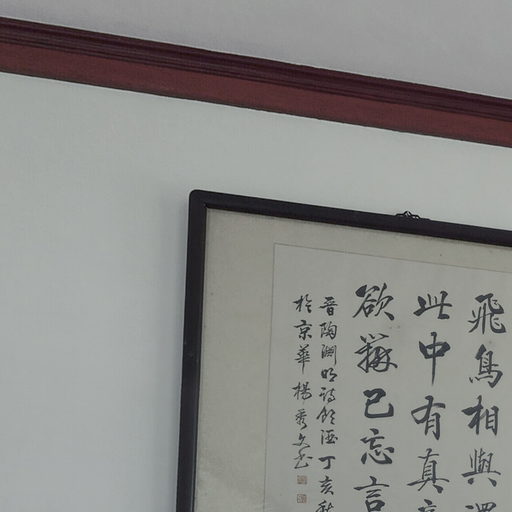 飛鳥相與還
此中有真意
欲辨已忘言
晋陶渊明詩飲酒丁亥秋
於京華楊秀文书